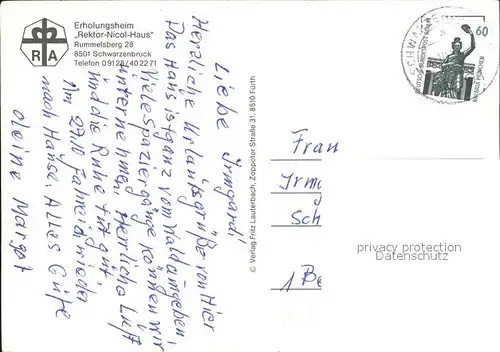 Erholungsheim
„Rektor-Nicol-Haus"
Rummelsberg 28
8501 Schwarzenbruck
Telefon 09128/402271
R A
Liebe Irmgard!
Herzliche Urlaubsgrüße von Hier
Das Haus ist ganz vom Wald umgeben,
Viele Spaziergänge können wir
unternehmen. Herrliche Luft
und die Ruhe tut gut.
Am 29.10 Fahre ich wieder
nach Hause. Alles Gute
deine Margot
© Verlag Fritz Lauterbach, Zoppoter Straße 31, 8510 Fürth
60
DEUTSCHE BUNDESPOST BERLIN
BAVARIA MÜNCHEN
SCHWA
Frau
Irmg
Sch
1 Be
privacy protection
Datenschutz